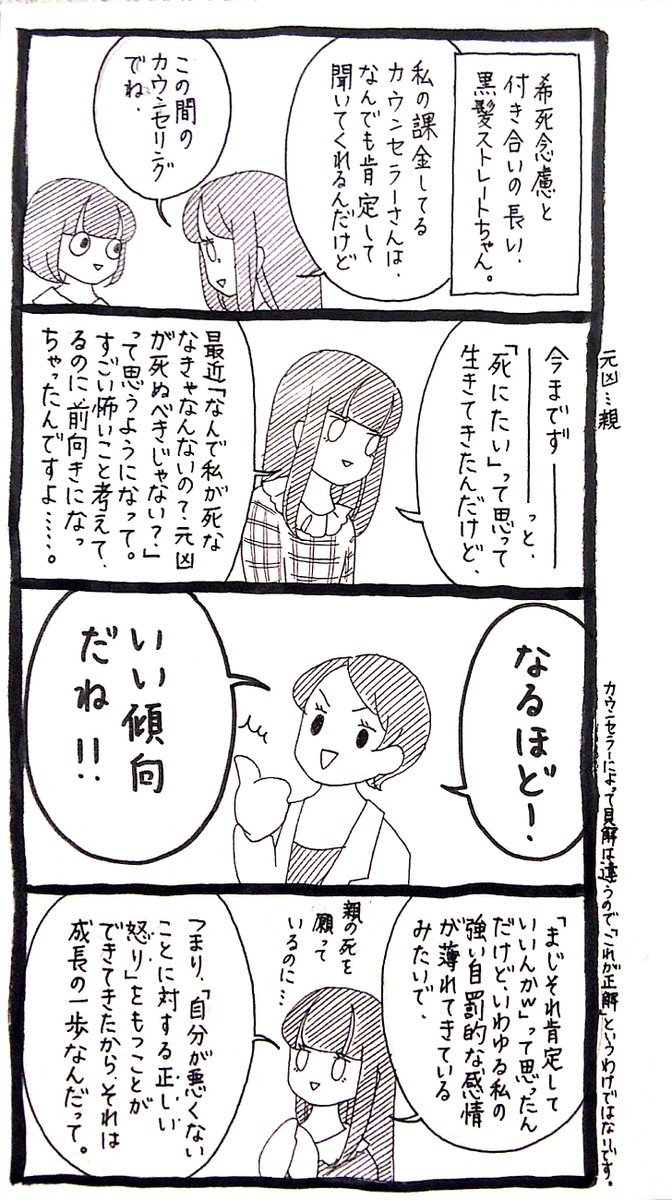 希死念慮と
付き合いの長い、
黒髪ストレートちゃん。
私の課金してる
カウンセラーさんは、
なんでも肯定して
聞いてくれるんだけど
この間の
カウンセリング
でね、
元凶…親
今までず――――っと、
「死にたい」って思って
生きてきたんだけど、
最近「なんで私が死な
なきゃなんないの？元凶
が死ぬべきじゃない？」
って思うようになって。
すごい怖いこと考えて
るのに前向きになっ
ちゃったんですよ……。
なるほど！
いい傾向
だね！！
カウンセラーによって見解は違うので「これが正解」というわけではないです。
「まじそれ肯定して
いいんかw」って思ったん
だけど、いわゆる私の
強い自罰的な感情
が薄れてきている
みたいで、
親の死を
願って
いるのに…
つまり、「自分が悪くない
ことに対する正しい
怒り」をもつことが
できてきたから、それは
成長の一歩なんだって。